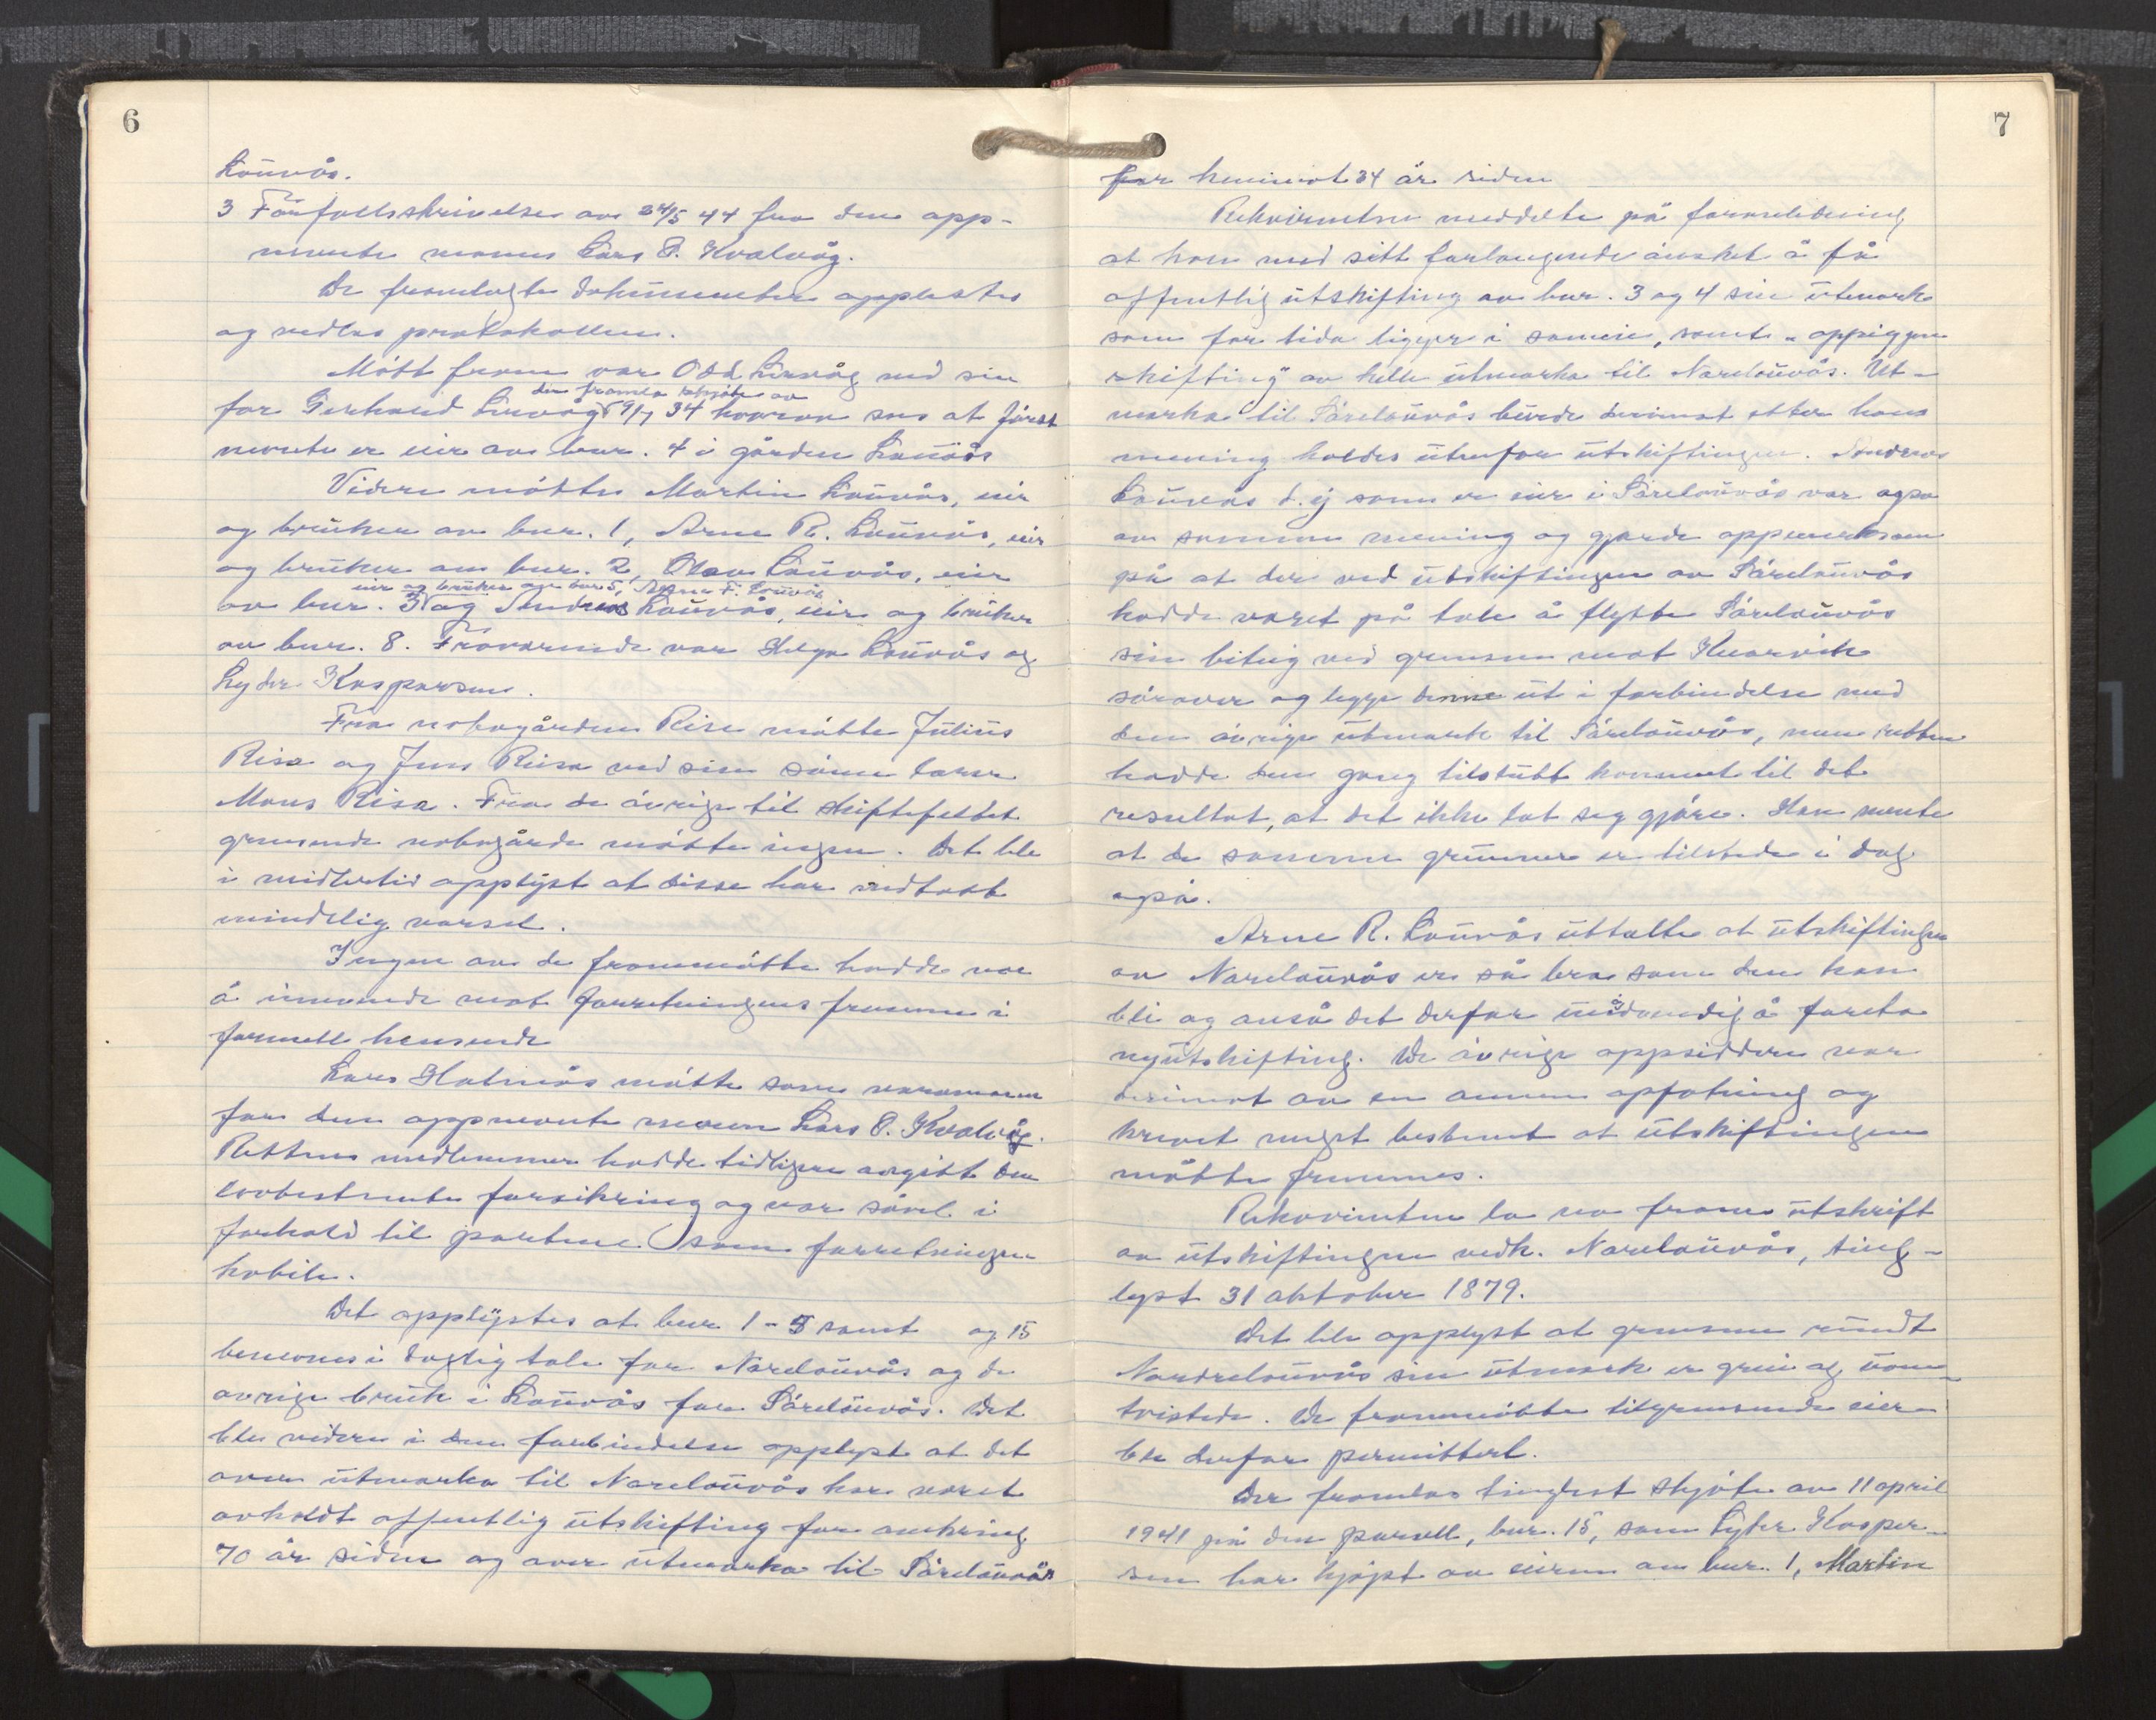 6
Lauvås.
3 Forfallsskrivelse av 24/5 44 fra den opp-
nevnte mann Lars P. Kvalvåg.
De framlagte dokumenter opplestes
og vedlas protokollen.
Møtt frem var Odd Lervåg ved sin
den framla skjøte av
far Gerhard Lervåg 9/7 34 hvorav sees at først
nevnte er eier av bnr. 4 i gården Lauvås
Videre møtte Martin Lauvås, eier
og bruker av bnr. 1, Arne R. Lauvås, eier
og bruker av bnr. 2, Olav Lauvås, eier
eier og bruker av bnr 5, Arne F. Lauvås
av bnr. 3 og Andreas Lauvås, eier og bruker
av bnr. 8. Fraværende var Helga Lauvås og
Lyder Kaspersen.
Fra nabogården Risa møtte Julius
Risa og Jens Risa ved sin sønn lærer
Mons Risa. Fra de øvrige til skiftefeltet
grensende nabogårder møtte ingen. Det ble
i midlertid opplyst at disse har vedtatt
mindelig varsel.
Ingen av de frammøtte hadde noe
å innvende mot forretningens fremme i
formell henseende
Lars Hatnås møtte som varamann
for den oppnevnte mann Lars P. Kvalvåg.
Rettens medlemmer hadde tidligere avgitt den
lovbestemte forsikring og var såvel i
forhold til partene som forretningen
habile.
Det opplystes at bnr 1-5 samt og 15
benevnes i daglig tale for Nordlauvås og de
øvrige bruk i Lauvås for Sørlauvås. Det
ble videre i den forbindelse opplyst at det
over utmarka til Nordlauvås har vært
avholdt offentlig utskifting for omkring
70 år siden og over utmarka til Sørlauvås
7
for henimot 34 år siden
Rekvirenten meddelte på foranledning
at han med sitt forlangende ønsket å få
offentlig utskifting av bnr. 3 og 4 sin utmark
som for tida ligger i sameie, samt „oppigjen
skifting" av hele utmarka til Nordlauvås. Ut-
marka til Sørlauvås burde derimot etter hans
mening holdes utenfor utskiftingen. Andreas
Lauvås d.y som er eier i Sørlauvås var også
av samme mening og gjorde oppmerksom
på at der ved utskiftingen av Sørlauvås
hadde været på tale å flytte Sørlauvås
sin beteig ved grensen mot Kvarvik
sørover og legge denne ut i forbindelse med
den øvrige utmark til Sørlauvås, men retten
hadde den gang tilslutt kommet til det
resultat, at det ikke lot seg gjøre. Han mente
at de samme grunner er tilstede i dag
også.
Arne R. Lauvås uttalte at utskiftingen
av Nordlauvås er så bra som den kan
bli og anså det derfor unødvendig å foreta
nyutskifting. De øvrige oppsiddere var
derimot av en annen opfatning og
krevet meget bestemt at utskiftingen
måtte fremmes.
Rekvirenten la no fram utskrift
av utskiftingen vedk. Nordlauvås, ting-
lyst 31 oktober 1879.
Det ble opplyst at grensene rundt
Nordrelauvås sin utmark er grei og uom-
tvistede. De frammøtte tilgrensende eiere
ble derfor permittert.
Der framlas tinglest skjøte av 11 april
1941 på den parsell, bnr. 15, som Lyder Kasper-
sen har kjøpt av eieren av bnr. 1, Martin